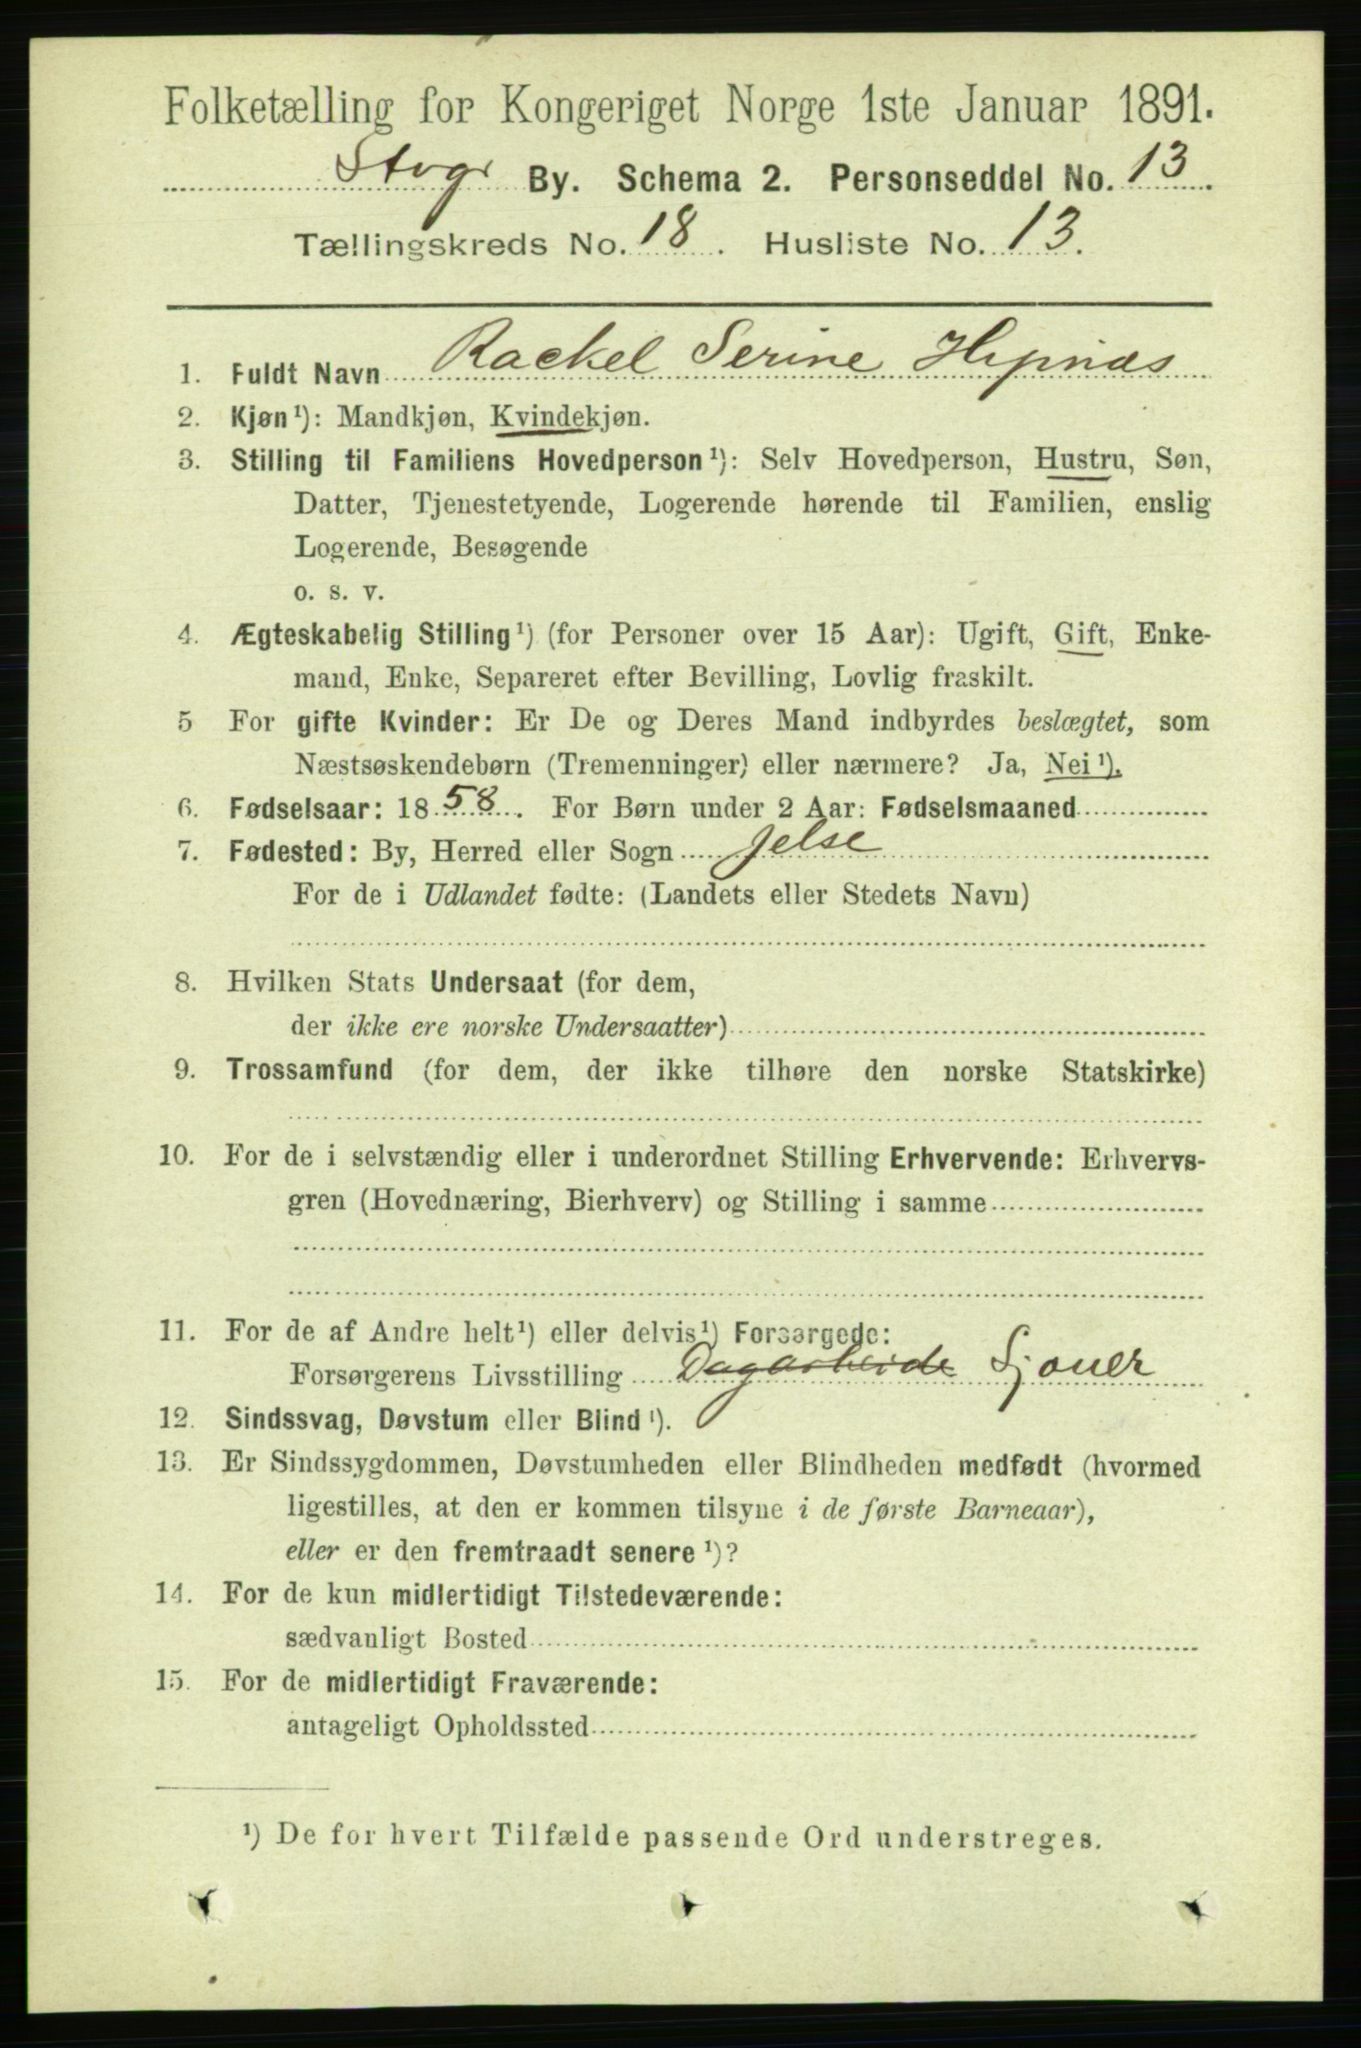 Folketælling for Kongeriget Norge 1ste Januar 1891.
Stvgr By. Schema 2. Personseddel No. 13.
Tællingskreds No. 18. Husliste No. 13.
1. Fuldt Navn Rackel Serine
2. Kjøn¹): Mandkjøn, Kvindekjøn.
3. Stilling til Familiens Hovedperson¹): Selv Hovedperson, Hustru, Søn,
Datter, Tjenestetyende, Logerende hørende til Familien, enslig
Logerende, Besøgende
o. s. v.
4. Ægteskabelig Stilling¹) (for Personer over 15 Aar): Ugift, Gift, Enke-
mand, Enke, Separeret efter Bevilling, Lovlig fraskilt.
5 For gifte Kvinder: Er De og Deres Mand indbyrdes beslægtet, som
Næstsøskendebørn (Tremenninger) eller nærmere? Ja, Nei¹).
6. Fødselsaar: 1858. For Børn under 2 Aar: Fødselsmaaned
7. Fødested: By, Herred eller Sogn Jelse
For de i Udlandet fødte: (Landets eller Stedets Navn)
8. Hvilken Stats Undersaat (for dem,
der ikke ere norske Undersaatter)
9. Trossamfund (for dem, der ikke tilhøre den norske Statskirke)
10. For de i selvstændig eller i underordnet Stilling Erhvervende: Erhvervs-
gren (Hovednæring, Bierhverv) og Stilling i samme
11. For de af Andre helt¹) eller delvis¹) Forsørgede:
Forsørgerens Livsstilling Dagarbeide Sjouer
12. Sindssvag, Døvstum eller Blind¹).
13. Er Sindssygdommen, Døvstumheden eller Blindheden medfødt (hvormed
ligestilles, at den er kommen tilsyne i de første Barneaar),
eller er den fremtraadt senere¹)?
14. For de kun midlertidigt Tilstedeværende:
sædvanligt Bosted
15. For de midlertidigt Fraværende:
antageligt Opholdssted
¹) De for hvert Tilfælde passende Ord understreges.